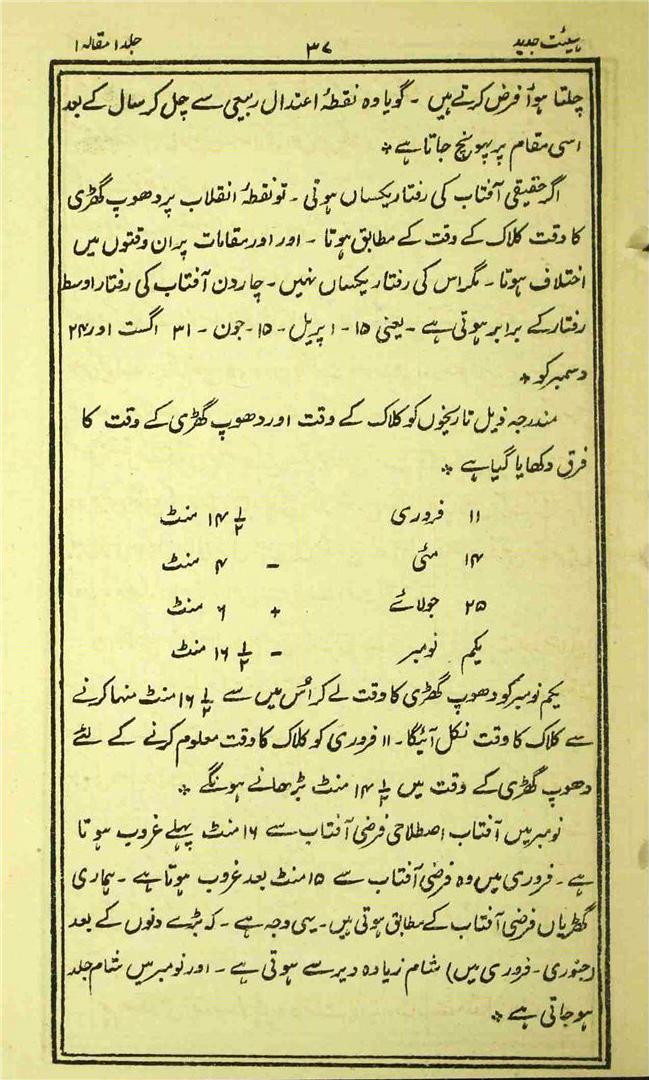 ہیئت جدید ۳۷ جلد ۱ مقالہ ۱
چلتا ہوأ فرض کرتے ہیں ۔ گویا وہ نقطۂ اعتدال ربیعی سے چل کر سال کے بعد
اسی مقام پر پہونچ جاتا ہے *
اگر حقیقی آفتاب کی رفتار یکساں ہوتی ۔ تو نقطۂ انقلاب پر دھوپ گھڑی
کا وقت کلاک کے وقت کے مطابق ہوتا ۔ اور اور مقامات پر ان وقتوں میں
اختلاف ہوتا ۔ مگر اس کی رفتار یکساں نہیں ۔ چار دن آفتاب کی رفتار اوسط
رفتار کے برابر ہوتی ہے ۔ یعنی ۱۵ - اپریل ۔ ۱۵ - جون ۔ ۳۱ اگست اور ۲۴
دسمبر کو *
مندرجہ ذیل تاریخوں کو کلاک کے وقت اور دھوپ گھڑی کے وقت کا
فرق دکھایا گیا ہے *
۱۱ فروری ۱۴ ۱/۲ منٹ
۱۴ مئی - ۴ منٹ
۲۵ جولائے + ۶ منٹ
یکم نومبر - ۱۶ ۱/۲ منٹ
یکم نومبر کو دھوپ گھڑی کا وقت لے کر اُس میں سے ۱۶ ۱/۲ منٹ منہا کرنے
سے کلاک کا وقت نکل آئیگا ۔ ۱۱ فروری کو کلاک کا وقت معلوم کرنے کے لئے
دھوپ گھڑی کے وقت میں ۱۴ ۱/۲ منٹ بڑھانے ہونگے *
نومبر میں آفتاب اصطلاحی فرضی آفتاب سے ۱۶ منٹ پہلے غروب ہوتا
ہے ۔ فروری میں وہ فرضی آفتاب سے ۱۵ منٹ بعد غروب ہوتا ہے ۔ ہماری
گھڑیاں فرضی آفتاب کے مطابق ہوتی ہیں ۔ یہی وجہ ہے ۔ کہ بڑے دنوں کے بعد
(جنوری ۔ فروری میں) شام زیادہ دیر سے ہوتی ہے ۔ اور نومبر میں شام جلد
ہو جاتی ہے *